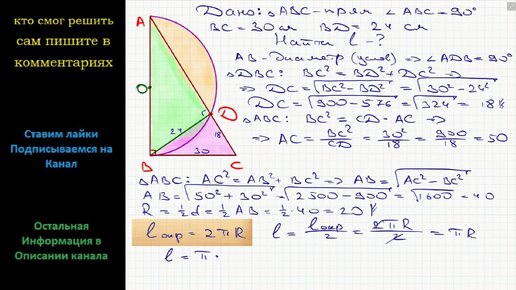 кто смог решить
сам пишите в
комментариях
Ставим лайки
Подписываемся на
Канал
Остальная
Информация в
Описании канала
A
O
D
24
18
B
30
C
Дано: △ABC-прям ∠ABC=90°
BC=30см BD=24 см
Найти l-?
AB-Диаметр (усл) ⇒ ∠ADB=90°
△DBC: BC²=BD²+DC² ⇒
⇒ DC=√BC²-BD² = √30²-24²
DC=√900-576 = √324 = 18
△ABC: BC²=CD·AC ⇒
⇒ AC= BC²/CD = 30²/18 = 900/18 = 50
△ABC: AC²=AB²+BC² ⇒ AB=√AC²-BC²
AB=√50²+30² = √2500-900 = √1600 = 40
R=½d=½AB=½·40=20
lокр=2πR l=lокр/2=2πR/2=πR
l=π·